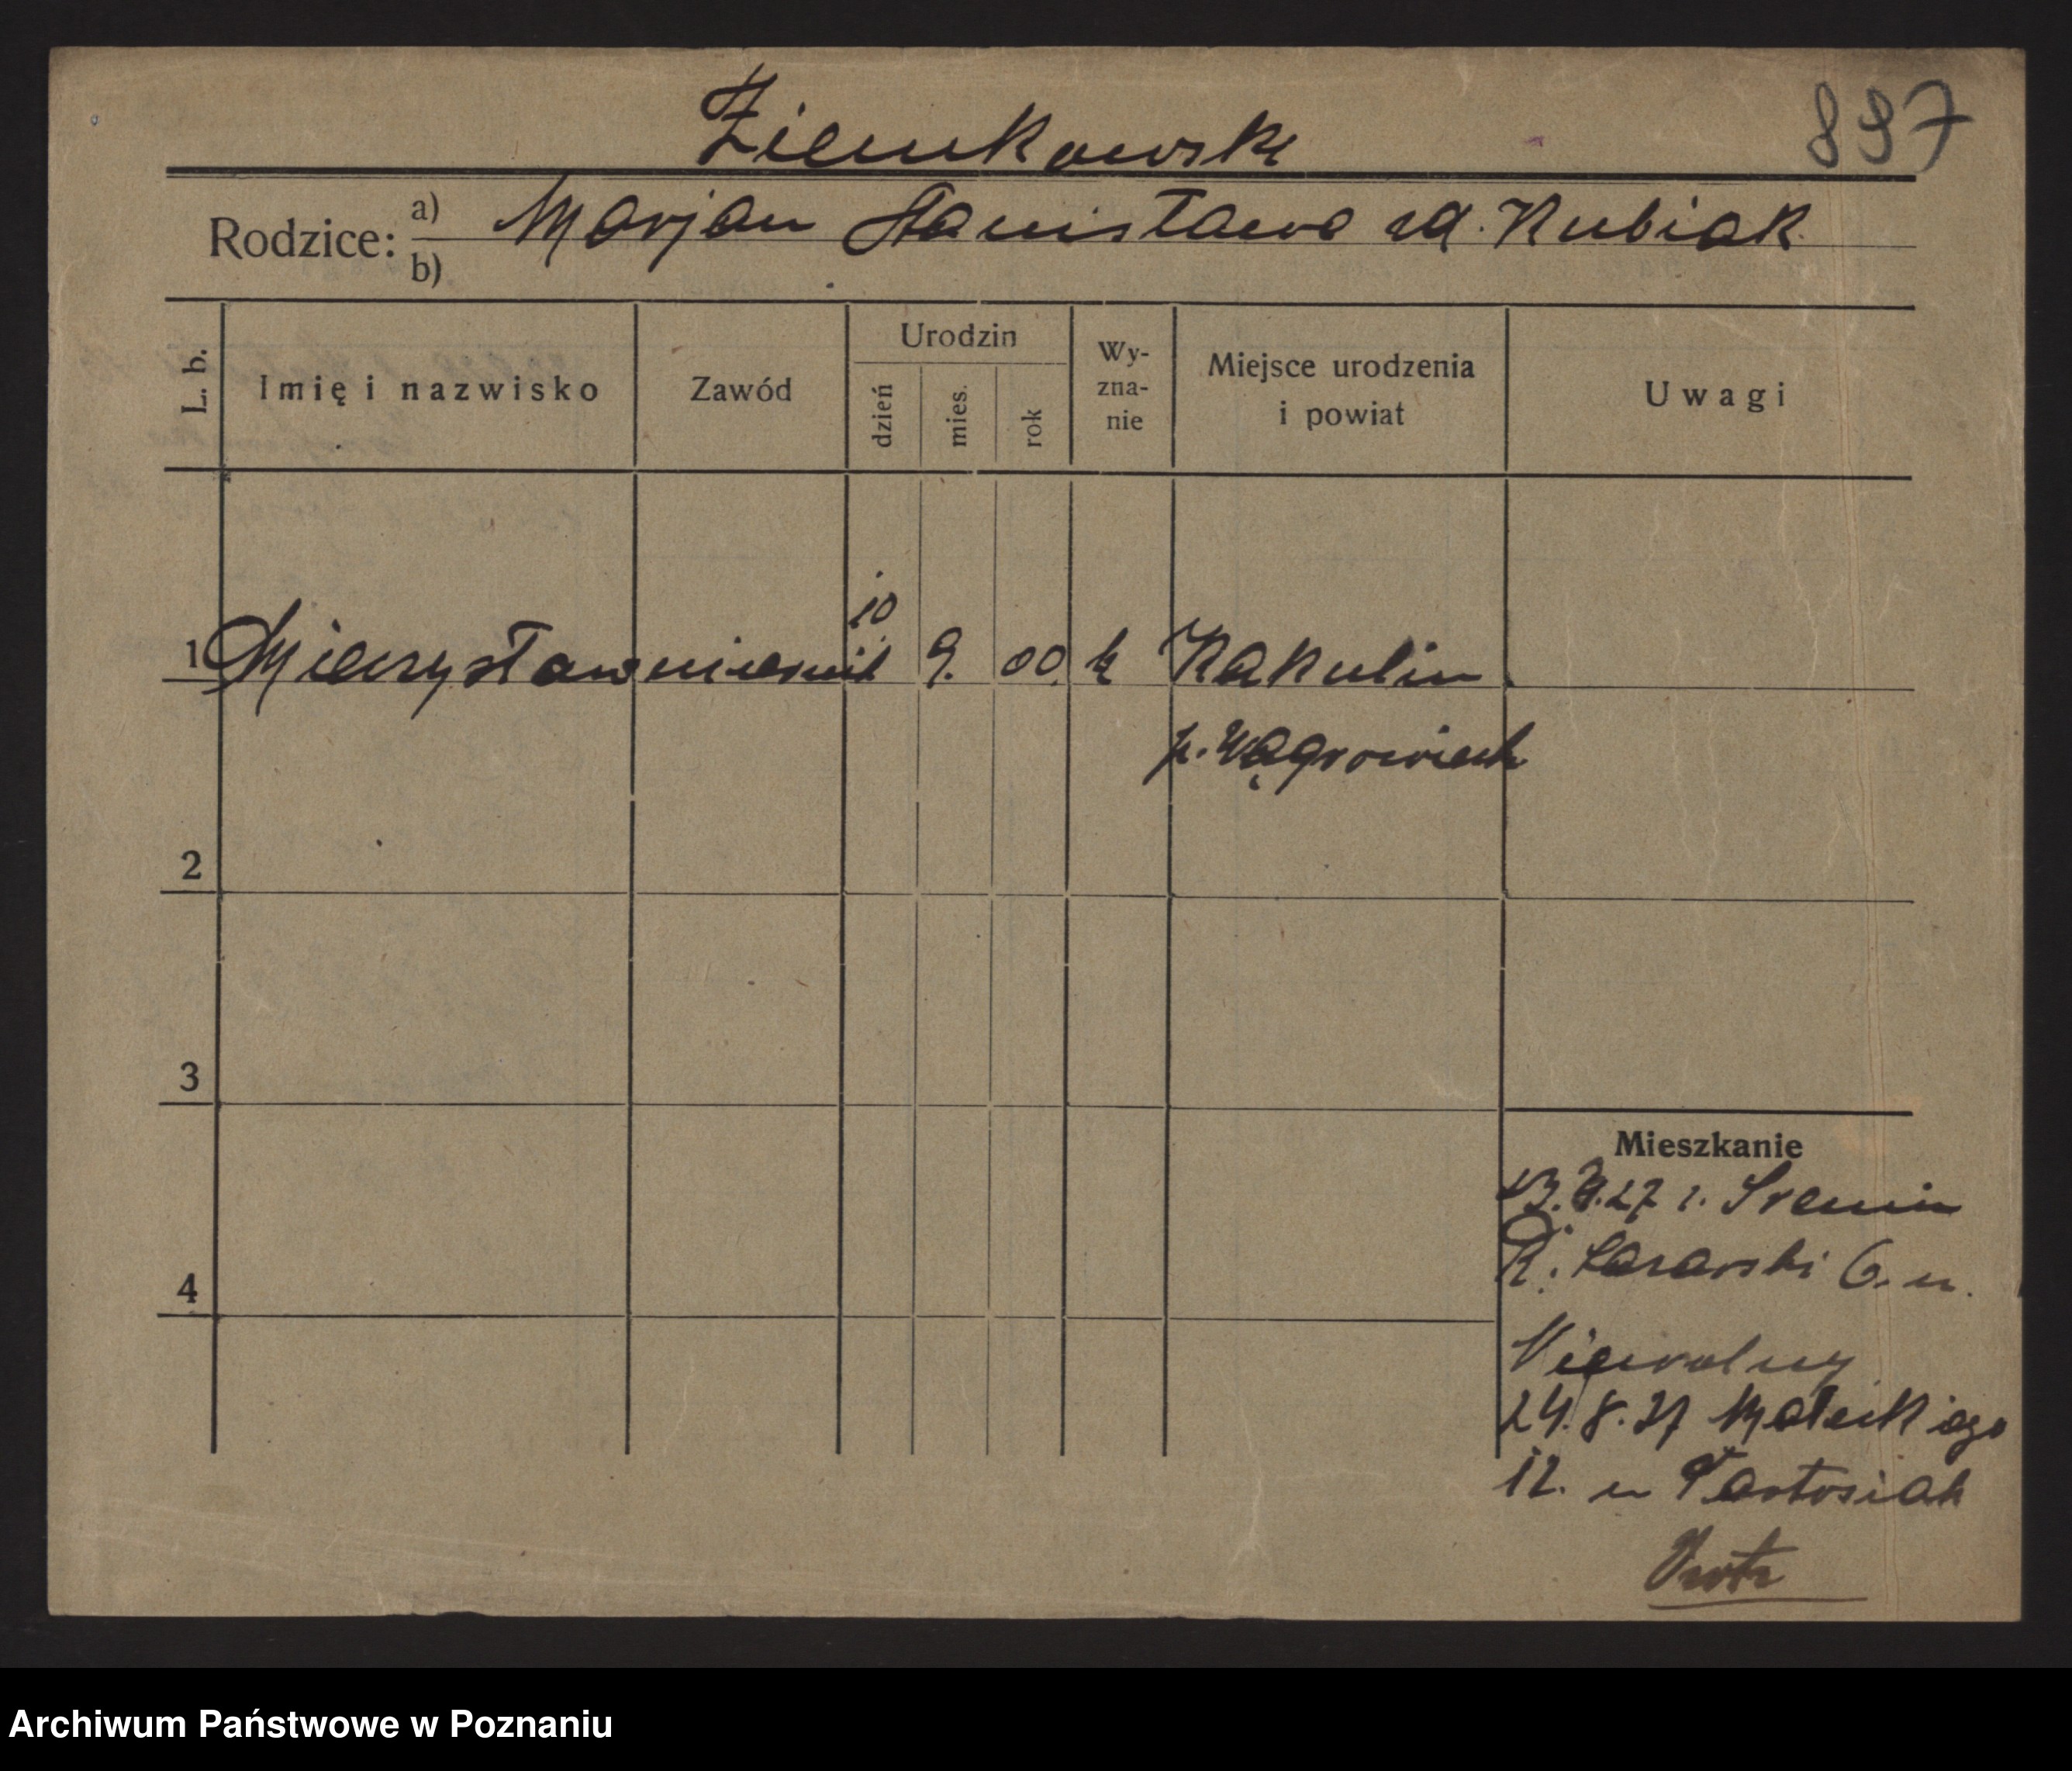 Ziemkowski
897
Rodzice: a) Marjan Stanisława zd. Kubiak
b)
L. b.
Imię i nazwisko
Zawód
Urodzin
dzień
mies.
rok
Wy-
zna-
nie
Miejsce urodzenia
i powiat
Uwagi
10
1 Mieczysław 9. 00. k Kakulin
p. Wągrowiech
2
3
4
Mieszkanie
27 r. Sremin
6. u.
24. 8. 27 Matejkiego
12. u
Archiwum Państwowe w Poznaniu